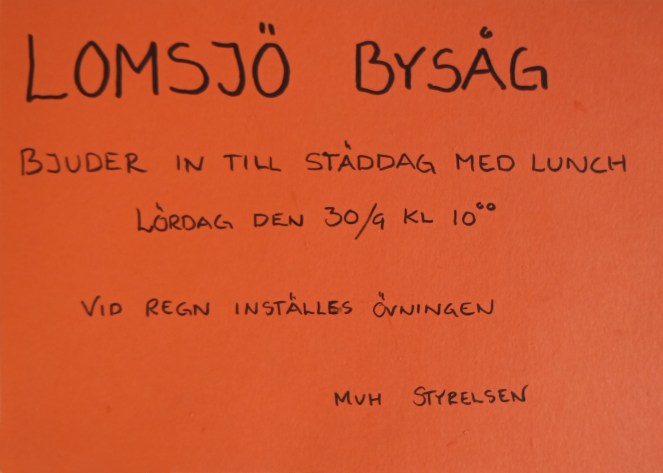 LOMSJÖ BYSÅG
BJUDER IN TILL STÄDDAG MED LUNCH
LÖRDAG DEN 30/9 KL 10⁰⁰
VID REGN INSTÄLLES ÖVNINGEN
MVH STYRELSEN